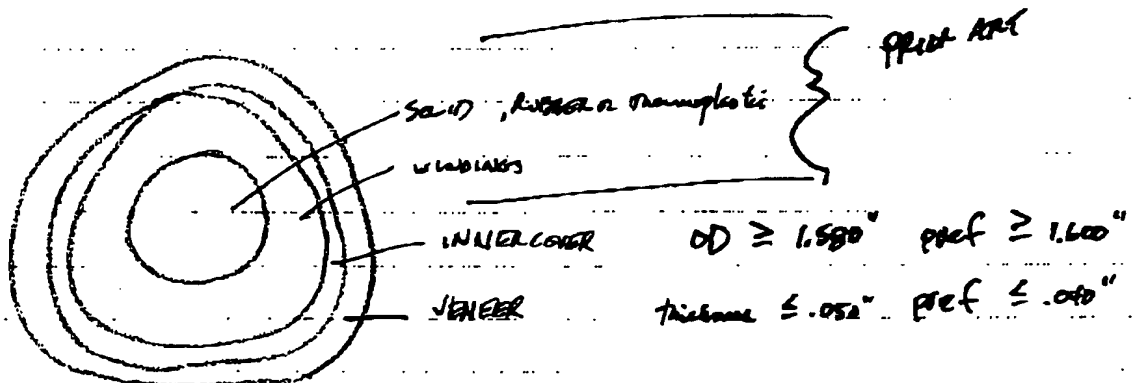 PRIOR ART
SOLID, RUBBER or thermoplastic
WINDINGS
INNERCOVER OD ≥ 1.580" pref ≥ 1.600"
VENEER thickness ≤ .050" pref ≤ .040"